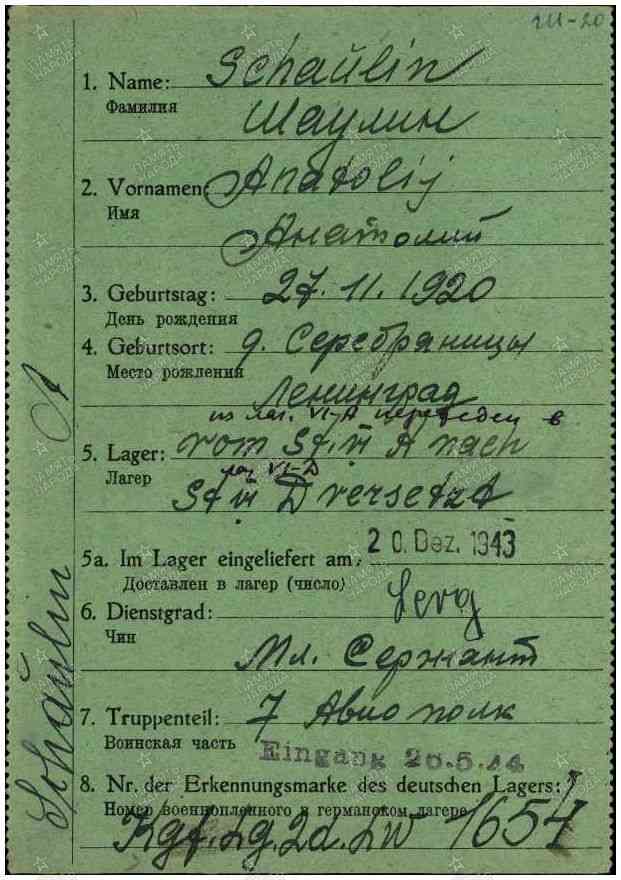 Ш-20
1. Name: Schaŭlin
Фамилия
Шаулин
2. Vornamen: Anatolij
Имя
Анатолий
3. Geburtstag: 27.11.1920
День рождения
4. Geburtsort: д. Серебряницы
Место рождения
Ленинград
из лаг. VI-А переведен в
5. Lager: vom St. VI A nach
Лагер
лаг VI-D
St VI D versetzt
5a. Im Lager eingeliefert am: 20. Dez. 1943
Доставлен в лагер (число)
6. Dienstgrad: Serg
Чин
Мл. Сержант
7. Truppenteil: 7 Авиополк
Воинская часть
Eingang 26.5.44
8. Nr. der Erkennungsmarke des deutschen Lagers:
Номер военнопленного в германском лагере
Kgf. Lg. 2d. Lw 1654
Schaŭlin A